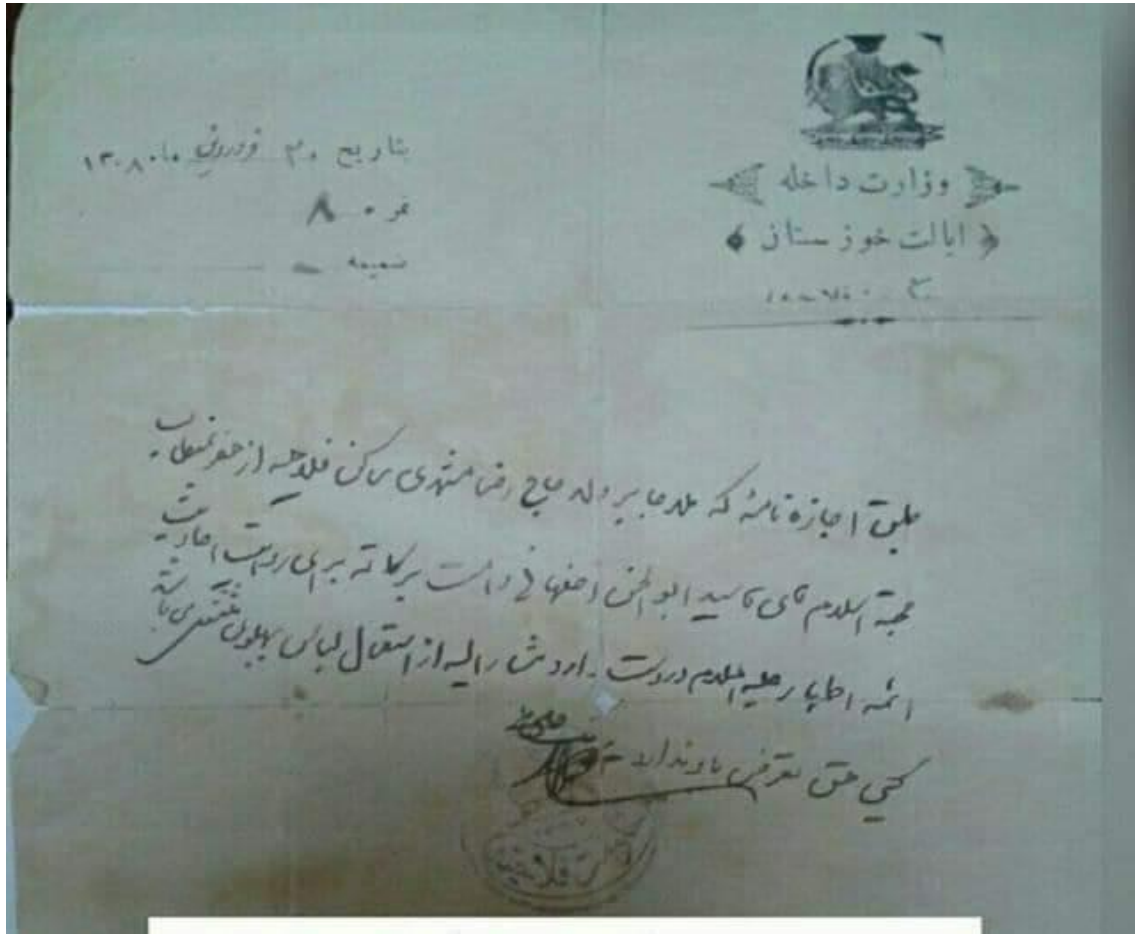 وزارت داخله
ایالت خوزستان
بتاریخ ۳۰ فروردین ماه ۱۳۰۸
نمره ۸
ضمیمه
طبق اجازه نامهٔ که ملا جابر ولد حاج رضا مشهدی ساکن فلاحیه از حضرت
حجة اسلام آقای آقا سید ابوالحسن اصفهانی دامت برکاته برای روایت احادیث
ائمه اطهار علیه السلام در دست دارد مشارالیه از استعمال لباس پهلوی مستثنی می باشد
کسی حق تعرض باو ندارد